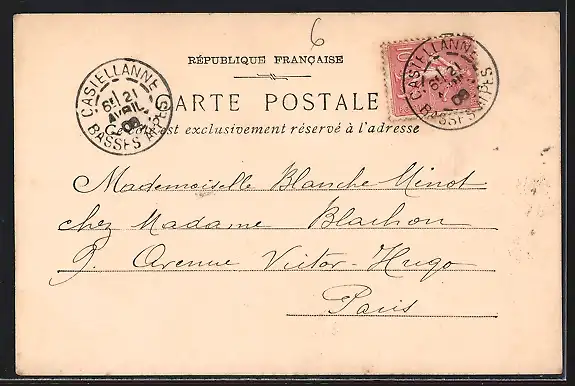 6
RÉPUBLIQUE FRANÇAISE
CARTE POSTALE
Ce côté est exclusivement réservé à l'adresse
CASTELLANNE
6E 21
AVRIL
03
BASSES ALPES
10
CASTELLANNE
6E 21
03
BASSES ALPES
Mademoiselle Blanche Minot
chez Madame Blachon
9. Avenue Victor-Hugo
Paris